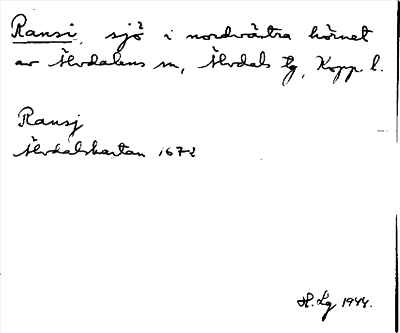 Ransi, sjö i nordvästra hörnet
av Älvdalens sn, Älvdals tg, Kopp. l.
Ransj
Älvdalskartan 1672
H. Lg 1944.